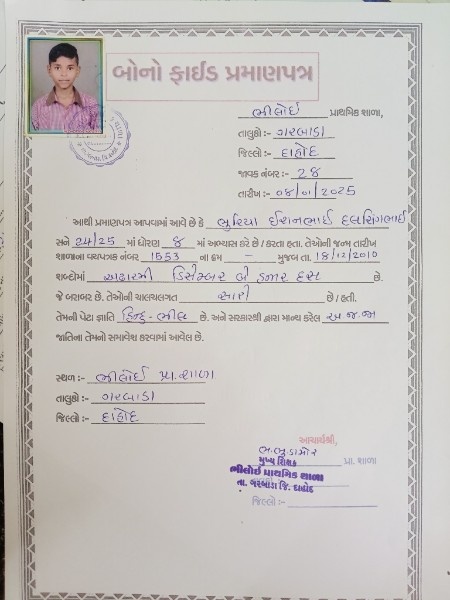 બોનો ફાઈડ પ્રમાણપત્ર
ભીલોઈ પ્રાથમિક શાળા,
તાલુકો:- ગરબાડા
જિલ્લો:- દાહોદ
જાવક નંબર:- 28
તારીખ:- 04/01/2025
આથી પ્રમાણપત્ર આપવામાં આવે છે કે ભુરિયા ઈશાનભાઈ દલસિંગભાઈ
સને 24/25 માં ધોરણ 8 માં અભ્યાસ કરે છે / કરતા હતા. તેઓની જન્મ તારીખ
શાળાના વયપત્રક નંબર 1553 ના ક્રમ - મુજબ તા. 18/12/2010
શબ્દોમાં અઢારમી ડિસેમ્બર બે હજાર દસ છે.
જે બરાબર છે. તેઓની ચાલચલગત સારી છે / હતી.
તેમની પેટા જ્ઞાતિ હિન્દુ-ભીલ છે. અને સરકારશ્રી દ્વારા માન્ય કરેલ અ.જ.જા
જાતિના તેમનો સમાવેશ કરવામાં આવેલ છે.
સ્થળ:- ભીલોઈ પ્રા.શાળા
તાલુકો:- ગરબાડા
જિલ્લો:- દાહોદ
આચાર્યશ્રી,
મુખ્ય શિક્ષક પ્રા. શાળા
ભીલોઈ પ્રાથમિક શાળા
તા. ગરબાડા જિ. દાહોદ
જિલ્લો:-